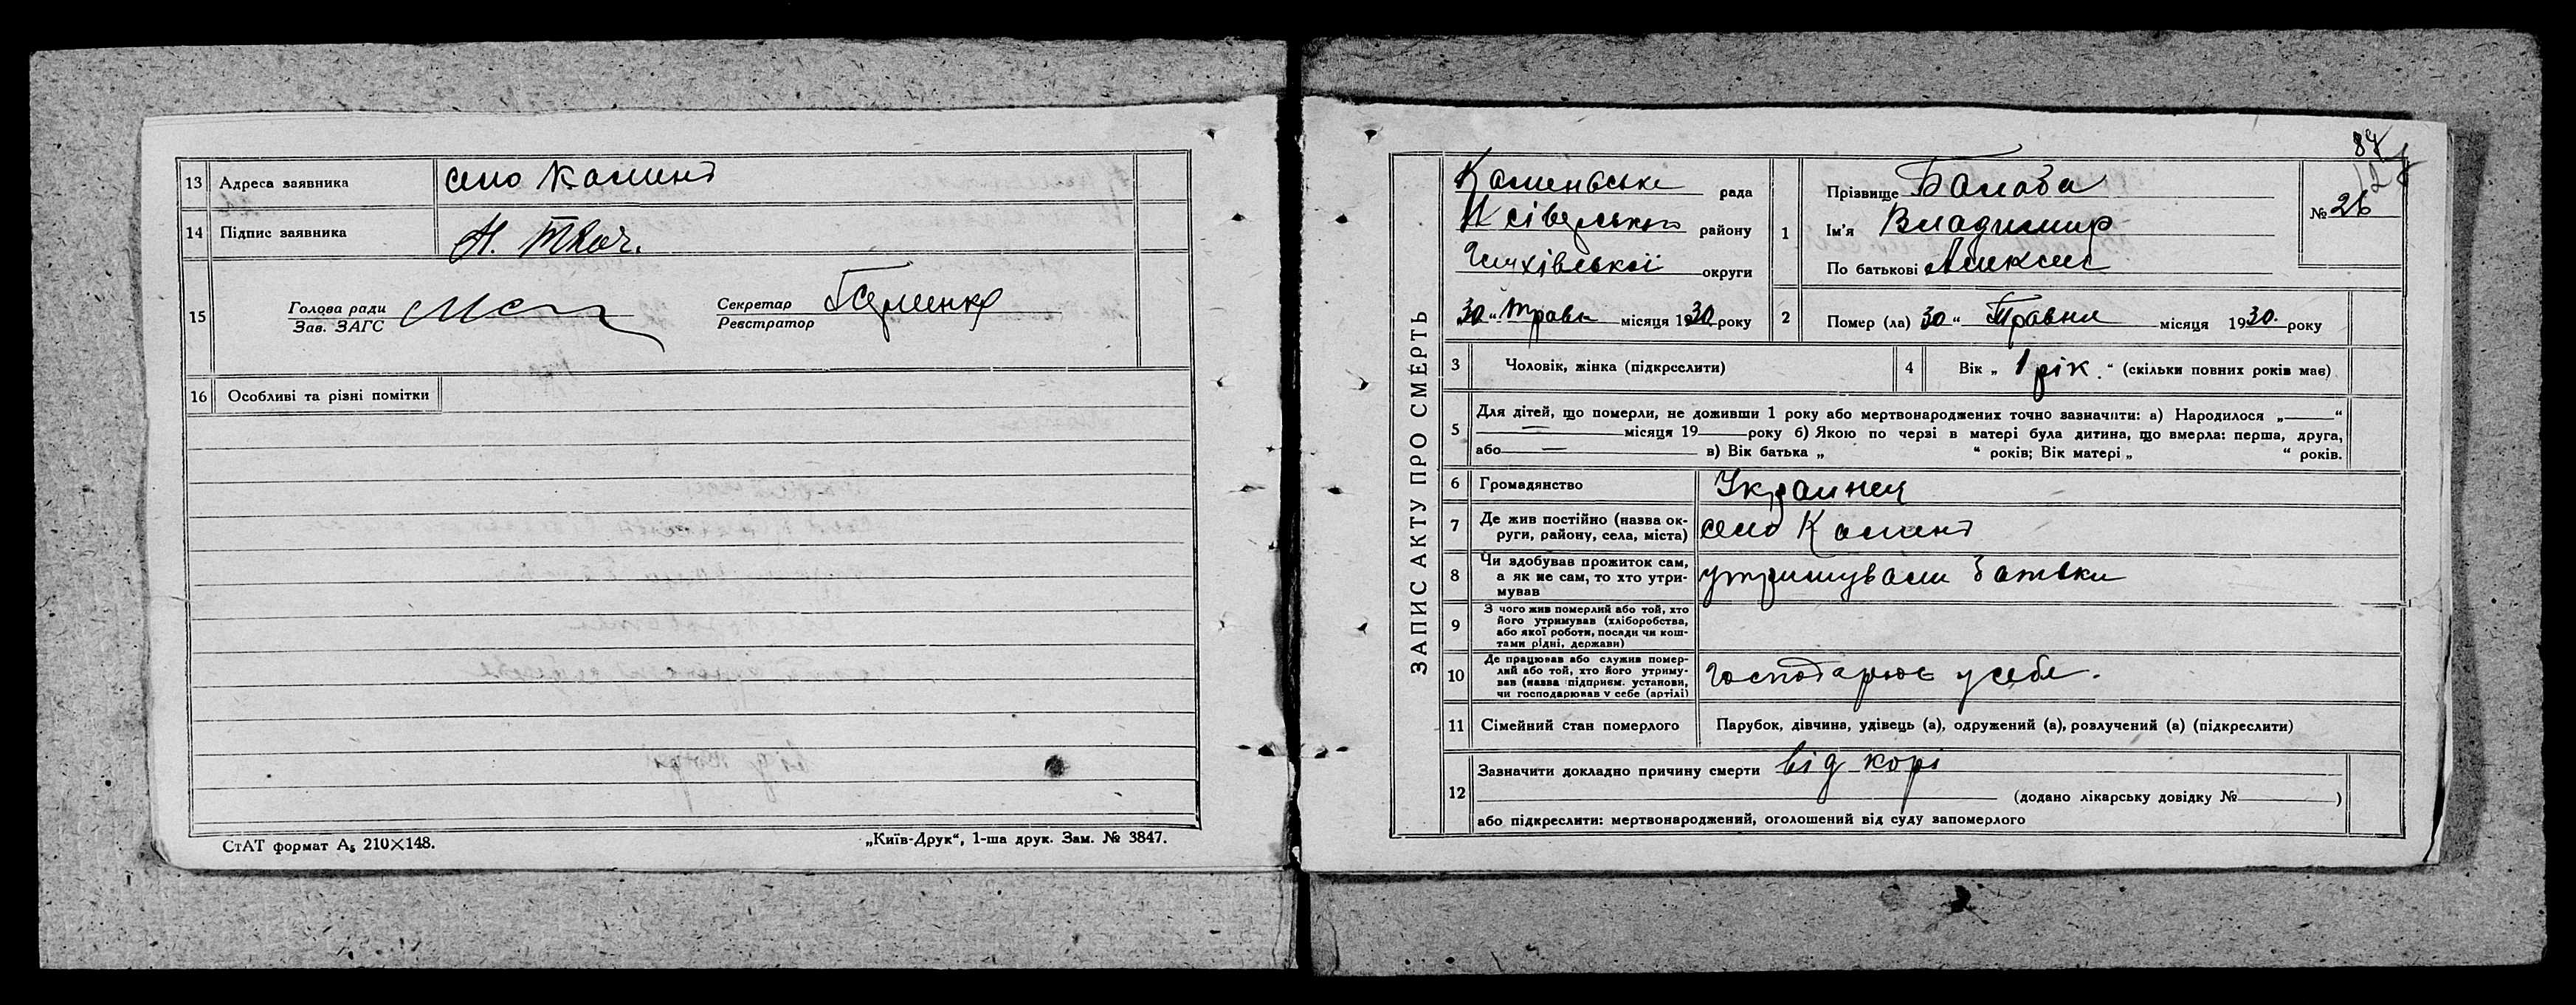 13 Адреса заявника село Камень
14 Підпис заявника Н. Ткач.
15 Голова ради
Зав. ЗАГС
Секретар
Реєстратор
16 Особливі та різні помітки
СтАТ формат А5 210×148.
„Київ-Друк“, 1-ша друк. Зам. № 3847.
84
ЗАПИС АКТУ ПРО СМЕРТЬ
Каменьське рада
Н сіверського району
Глухівської округи
30 „ Травн місяця 1930 року
1
Прізвище
Ім'я Владимир
По батькові Алексис
№ 26
2 Помер (ла) 30 „ Травня місяця 1930. року
3 Чоловік, жінка (підкреслити)
4 Вік „ 1 рік. “ (скільки повних років має)
5 Для дітей, що померли, не доживши 1 року або мертвонароджених точно зазначити: а) Народилося „ “
— місяця 19 року б) Якою по черзі в матері була дитина, що вмерла: перша, друга,
або — в) Вік батька „ “ років; Вік матері „ “ років.
6 Громадянство Украинец
7 Де жив постійно (назва ок-
руги, району, села, міста) село Камень
8 Чи здобував прожиток сам,
а як не сам, то хто утри-
мував утримували батьки
9 З чого жив померлий або той, хто
його утримував (хліборобства,
або якої роботи, посади чи кош-
тами рідні, держави)
10 Де працював або служив помер-
лий або той, хто його утриму-
вав (назва підприєм. установи,
чи господарював у себе (артілі) господарює у себе.
11 Сімейний стан померлого Парубок, дівчина, удівець (а), одружений (а), розлучений (а) (підкреслити)
12 Зазначити докладно причину смерти від корі
(додано лікарську довідку № )
або підкреслити: мертвонароджений, оголошений від суду запомерлого